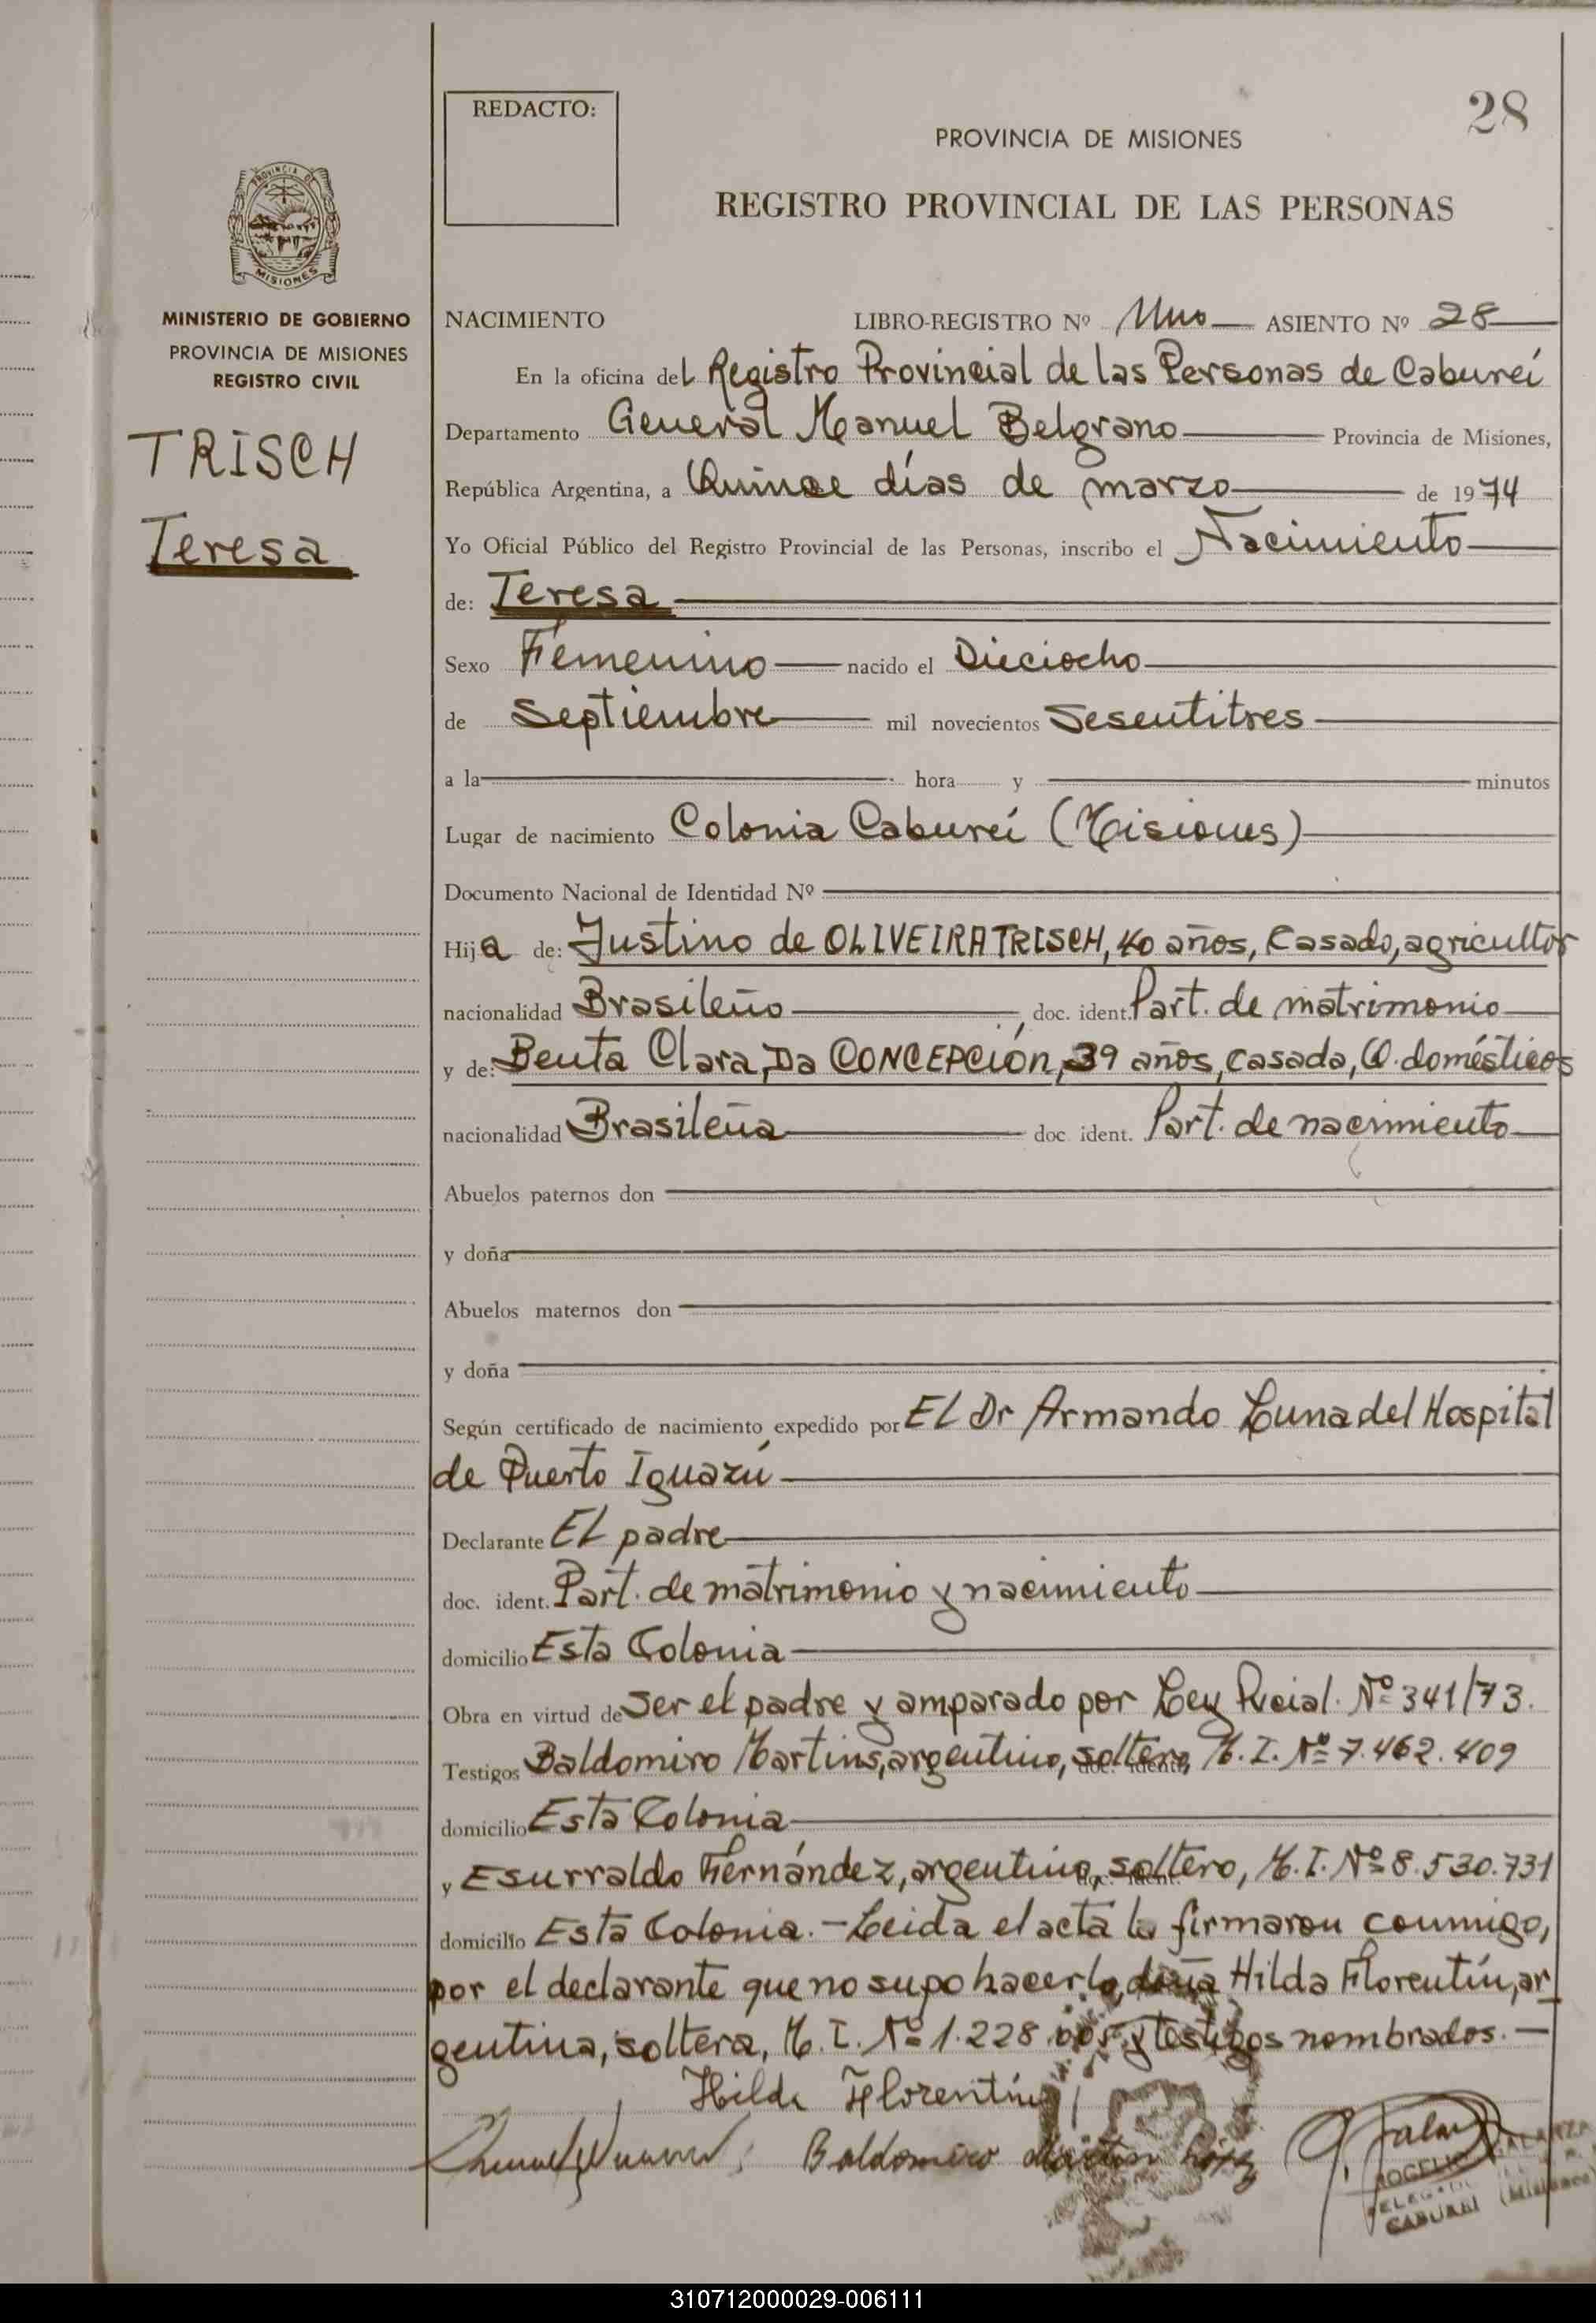 REDACTO:
28
PROVINCIA DE MISIONES
REGISTRO PROVINCIAL DE LAS PERSONAS
PROVINCIA DE
MISIONES
MINISTERIO DE GOBIERNO
PROVINCIA DE MISIONES
REGISTRO CIVIL
TRISCH
Teresa
NACIMIENTO LIBRO-REGISTRO Nº Uno ASIENTO Nº 28
En la oficina del Registro Provincial de las Personas de Cabureí
Departamento General Manuel Belgrano Provincia de Misiones,
República Argentina, a Quince días de marzo de 1974
Yo Oficial Público del Registro Provincial de las Personas, inscribo el Nacimiento
de: Teresa
Sexo Femenino nacido el Dieciocho
de Septiembre mil novecientos Sesentitres
a la hora y minutos
Lugar de nacimiento Colonia Cabureí (Misiones)
Documento Nacional de Identidad Nº
Hija de: Justino de OLIVEIRA TRISCH, 40 años, Casado, agricultor
nacionalidad Brasileño, doc. ident. Part. de matrimonio
y de: Benta Clara, Da CONCEPCIÓN, 39 años, casada, Q. domésticos
nacionalidad Brasileña doc. ident. Part. de nacimiento
Abuelos paternos don
y doña
Abuelos maternos don
y doña
Según certificado de nacimiento expedido por El Dr Armando Luna del Hospital
de Puerto Iguazú
Declarante El padre
doc. ident. Part. de matrimonio y nacimiento
domicilio Esta Colonia
Obra en virtud de Ser el padre y amparado por Ley Pvcial. Nº 341/73.
Testigos Baldomiro Martins, argentino, soltero, doc. ident. M. I. Nº 7.462.409
domicilio Esta Colonia
y Esurraldo Fernández, argentino, soltero, doc. ident. M. I. Nº 8.530.731
domicilio Esta Colonia.- Leida el acta la firmaron conmigo,
por el declarante que no supo hacerlo, doña Hilda Florentín, ar
gentina, soltera, M. I. Nº 1.228 y testigos nombrados.-
Hilda Florentín
Baldomiro
ROGELIO GALARZA
DELEGADO
CABUREI (Misiones)
310712000029-006111